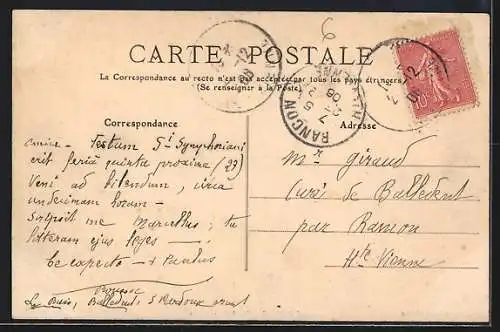 CARTE POSTALE
La Correspondance au recto n'est pas acceptée par tous les pays étrangers
(Se renseigner à la Poste.)
Correspondance
Adresse
amice - Festum Sti Symphoriani
erit feria quinta proxima (22)
Veni ad bibendum, circa
undecimam horam -
scripsit me Marcellus; tu
litteram ejus leges -
te expecto - + Paulus
Balledent, S
Mr Giraud
Curé de Balledent
par Rancon
Hte Vienne
RANCON
Hte VIENNE